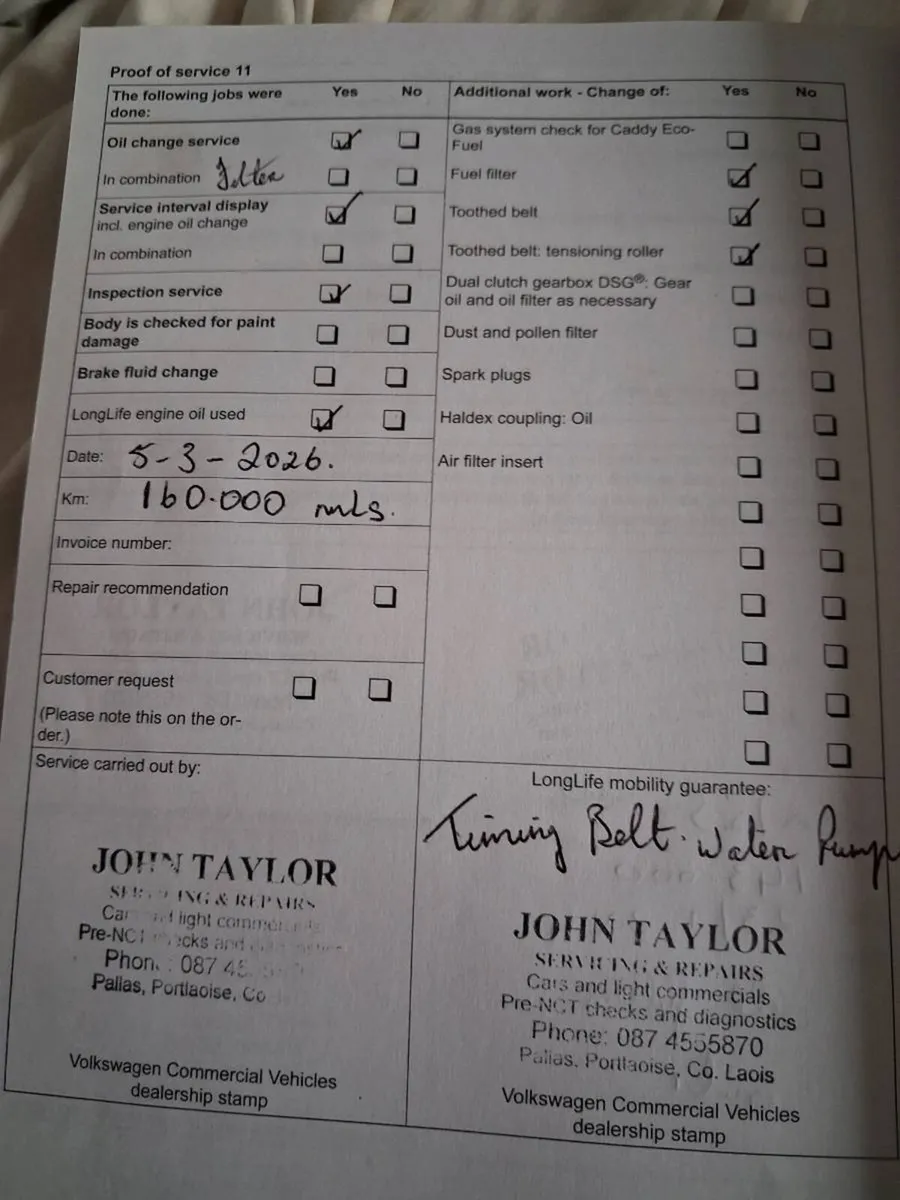 Proof of service 11
The following jobs were done: Yes No
Oil change service
In combination Filter
Service interval display
incl. engine oil change
In combination
Inspection service
Body is checked for paint
damage
Brake fluid change
LongLife engine oil used
Date: 5-3-2026.
Km: 160.000 mls.
Invoice number:
Repair recommendation
Customer request
(Please note this on the or-
der.)
Additional work - Change of: Yes No
Gas system check for Caddy Eco-
Fuel
Fuel filter
Toothed belt
Toothed belt: tensioning roller
Dual clutch gearbox DSG®: Gear
oil and oil filter as necessary
Dust and pollen filter
Spark plugs
Haldex coupling: Oil
Air filter insert
Service carried out by:
JOHN TAYLOR
& REPAIRS
light
Pre-NCT and
087
Pallas, Portlaoise, Co
Volkswagen Commercial Vehicles
dealership stamp
LongLife mobility guarantee:
Timing Belt. Water Pump
JOHN TAYLOR
SERVICING & REPAIRS
Cars and light commercials
Pre-NCT checks and diagnostics
Phone: 087 4555870
Pallas, Portlaoise, Co. Laois
Volkswagen Commercial Vehicles
dealership stamp